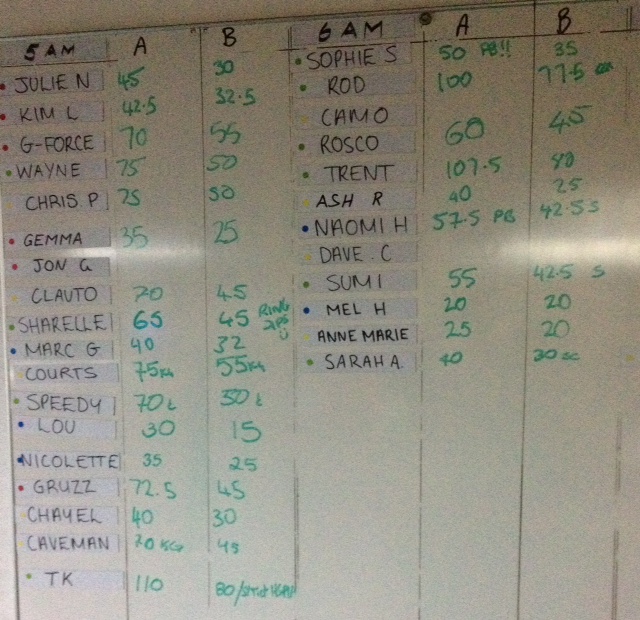 5 AM A B
JULIE N 45 30
KIM L 42.5 32.5
G-FORCE 70 55
WAYNE 75 50
CHRIS. P 75 50
GEMMA 35 25
JON G
CLAUTO 70 45
SHARELLE 65 45 RING DIPS
MARC G 40 32
COURTS 75KG 55KG
SPEEDY 70 L 50 L
LOU 30 15
NICOLETTE 35 25
GRUZZ 72.5 45
CHAYEL 40 30
CAVEMAN 70 KG 45
TK 110 80/strict
6 AM A B
SOPHIE S 50 PB!! 35
ROD 100 77.5
CAM O
ROSCO 60 45
TRENT 107.5 80
ASH R 40 25
NAOMI H 57.5 PB 42.5 S
DAVE . C
SUMI 55 42.5 S
MEL H 20 20
ANNE MARIE 25 20
SARAH A. 40 30 sc